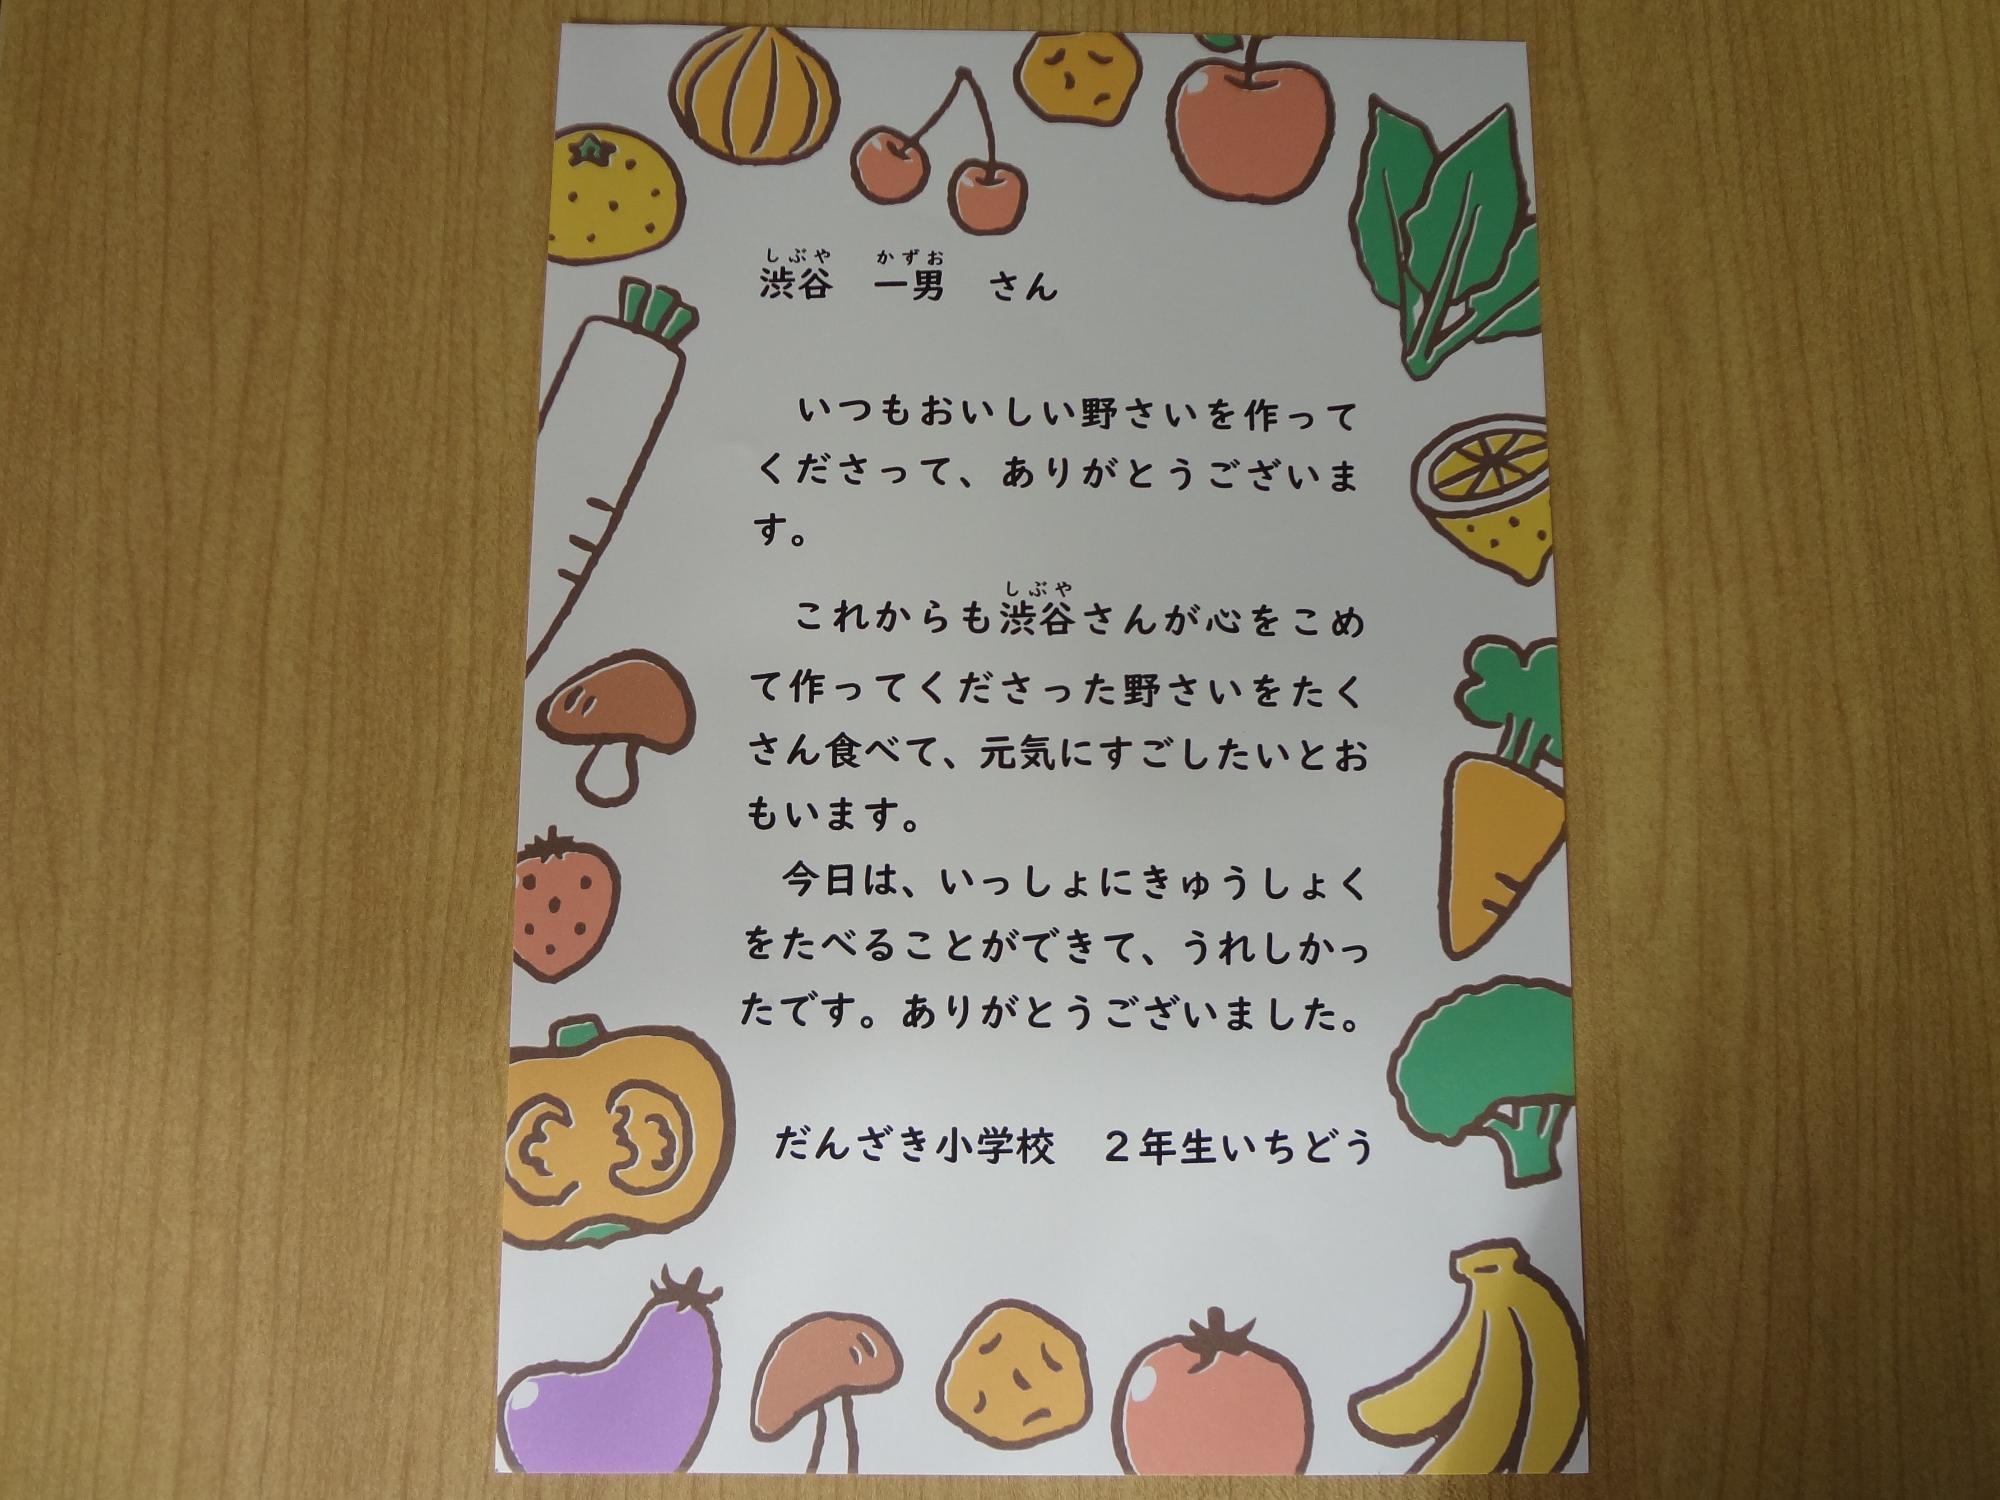 しぶや かずお
渋谷　一男　さん
いつもおいしい野さいを作って
くださって、ありがとうございま
す。
しぶや
これからも渋谷さんが心をこめ
て作ってくださった野さいをたく
さん食べて、元気にすごしたいとお
もいます。
今日は、いっしょにきゅうしょく
をたべることができて、うれしかっ
たです。ありがとうございました。
だんざき小学校　２年生いちどう